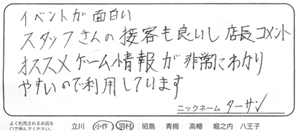 イベントが面白い
スタッフさんの接客も良いし 店長コメント
オススメゲーム情報が非常にわかり
やすいので利用しています
ニックネーム ターサン
よく利用されるお店を
○で囲んでください。 立川 小作 羽村 昭島 青梅 高幡 堀之内 八王子